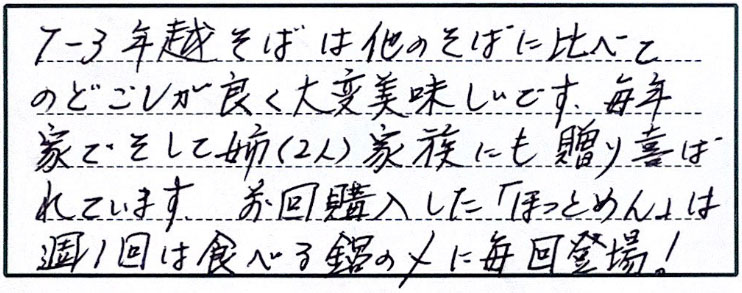 T-3年越そばは他のそばに比べて
のどごしが良く大変美味しいです。毎年
家でそして姉(2人)家族にも贈り喜ば
れています。前回購入した「ほっとめん」は
週1回は食べる鍋の〆に毎回登場!